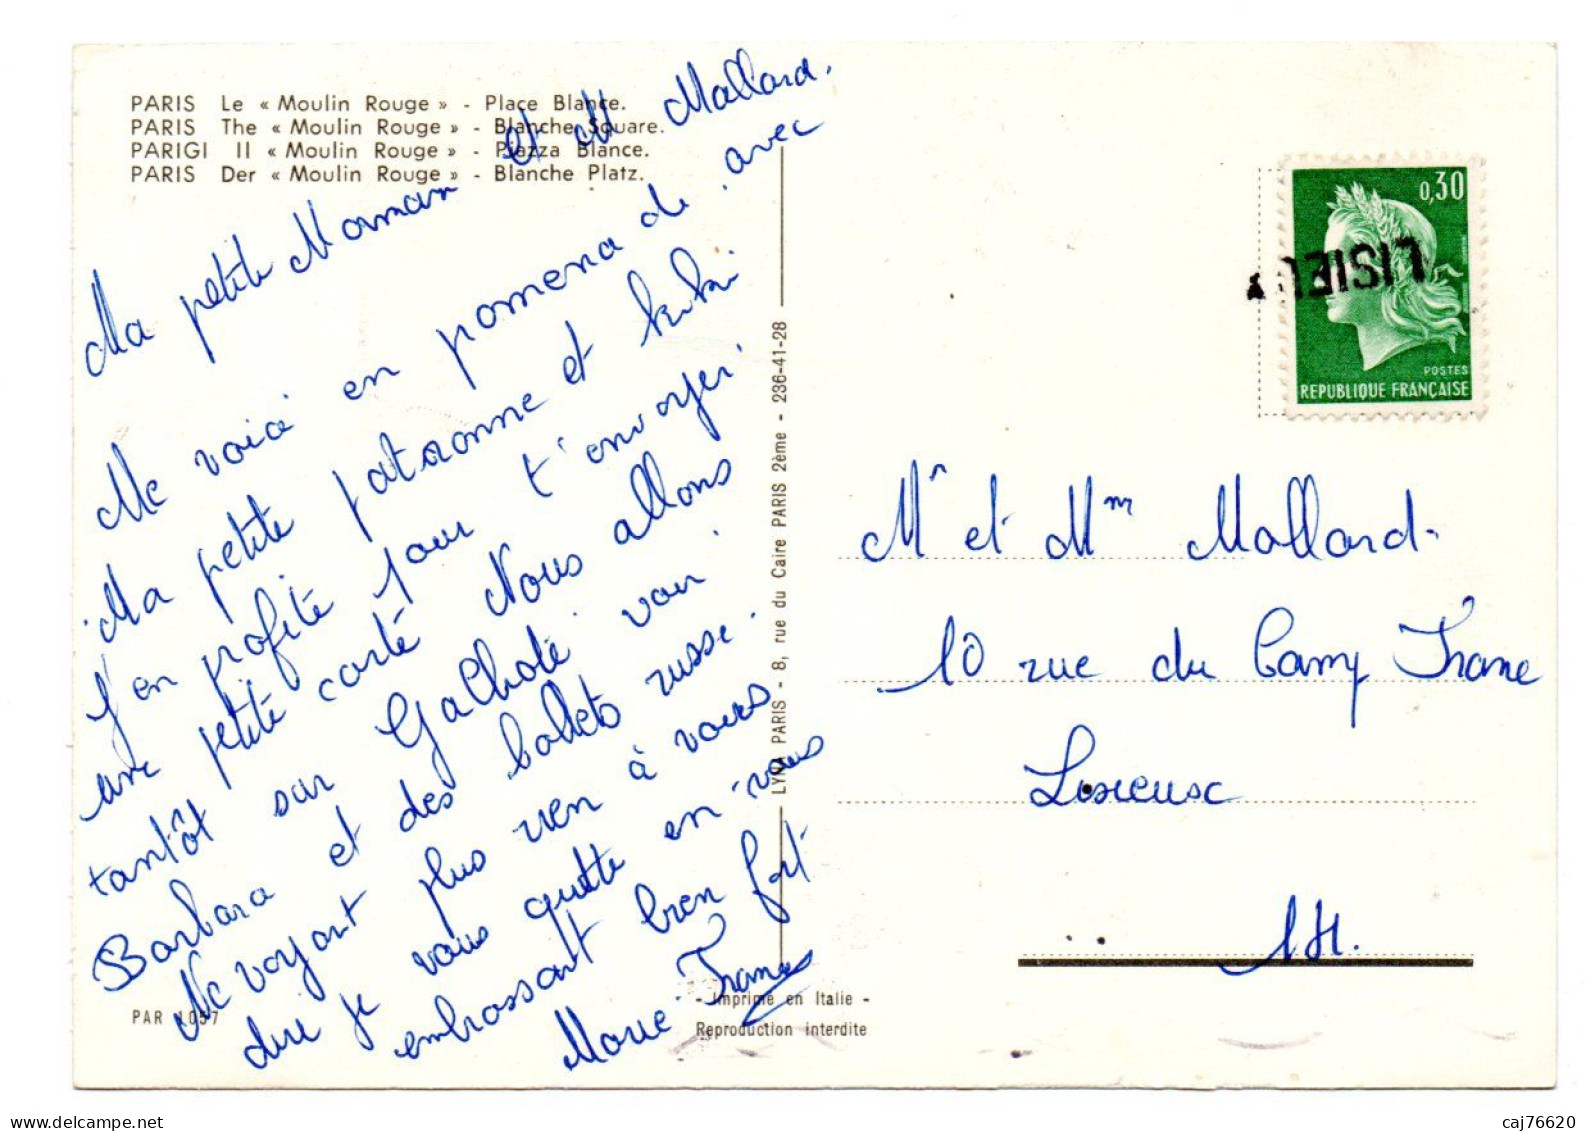 PARIS Le « Moulin Rouge » - Place Blance.
PARIS The « Moulin Rouge » - Blanche Square.
PARIGI Il « Moulin Rouge » - Piazza Blance.
PARIS Der « Moulin Rouge » - Blanche Platz.
Ma petite Maman et M Mallard.
Me voici en pomena de avec
Ma petite patronne et kiki
j'en profite pour t'envoyer
une petite carte Nous allons
tantôt sur voir
Barbara et des ballets russe.
Me voyant plus rien à vous
dire je vous quitte en vous
embrassant bien fort
Marie-France
PAR 1057
LYNA PARIS - 8, rue du Caire PARIS 2ème - 236-41-28
- Imprimé en Italie -
Reproduction interdite
0,30
POSTES
REPUBLIQUE FRANÇAISE
LISIEUX
Mr et Mm Mallard.
10 rue du Camp Franc
Lisieux
14.
www.delcampe.net
caj76620